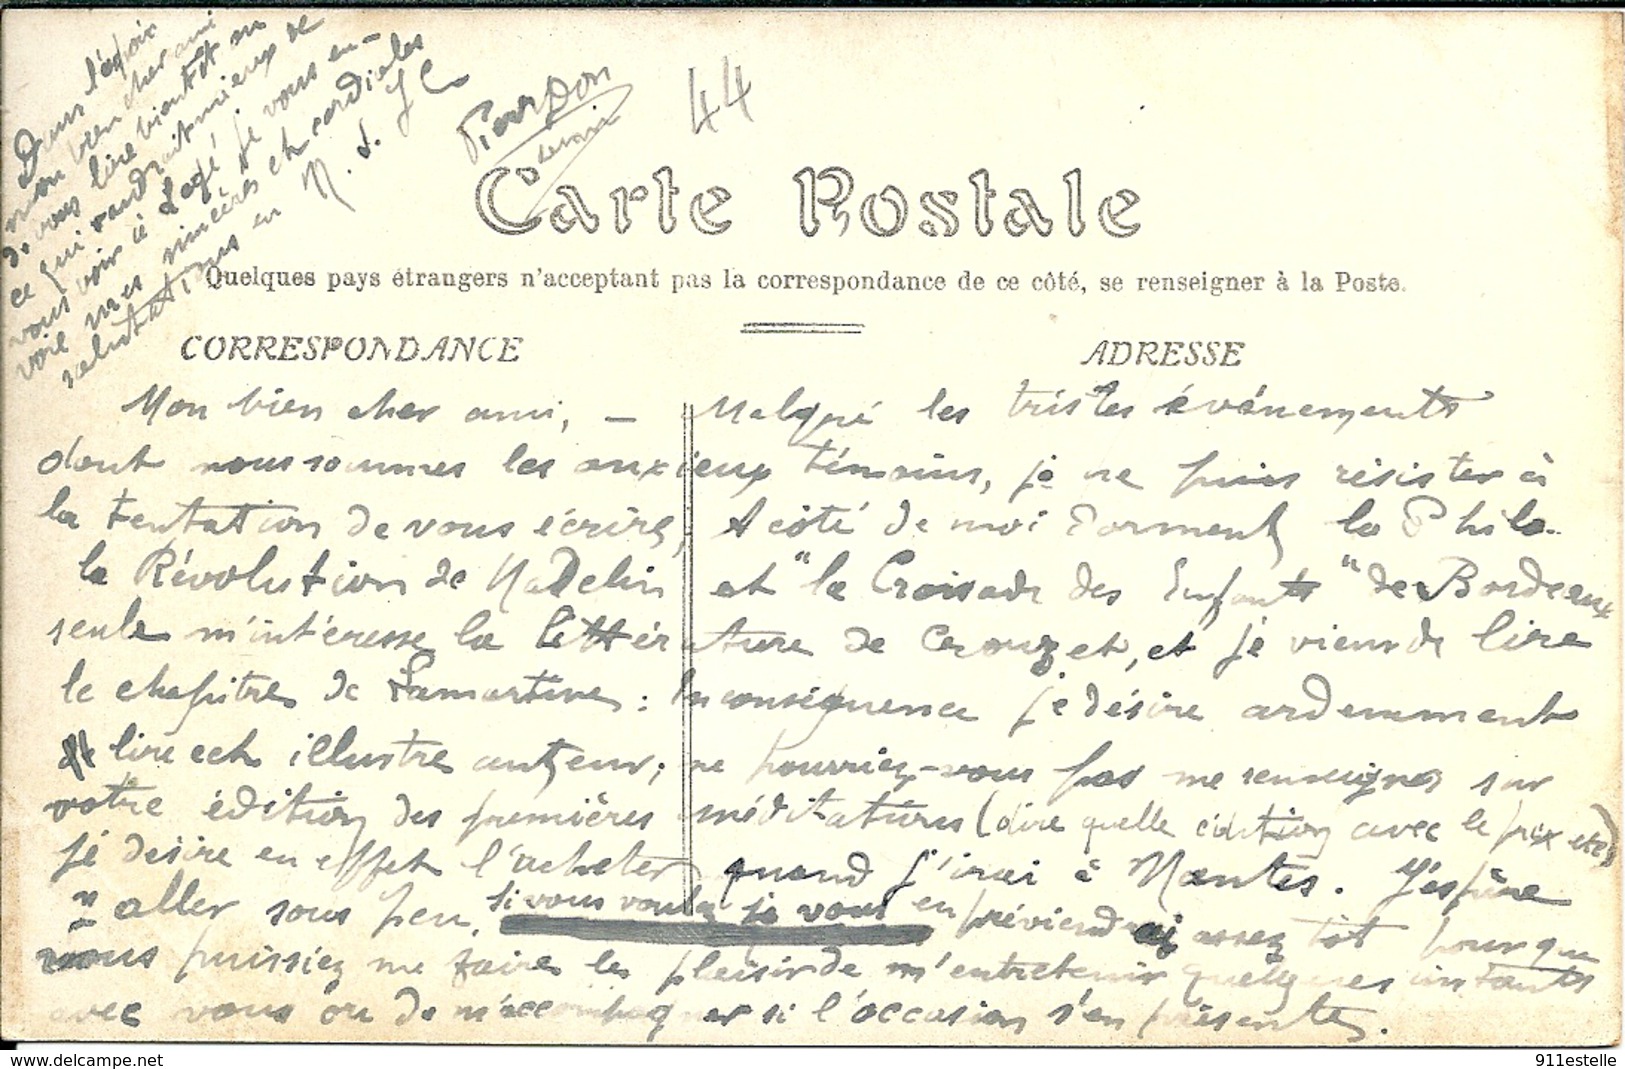 Dans l'espoir
mon bien cher ami
de vous lire bientôt ou
ce qui vaudrait mieux de
vous voir à Legé je vous en-
voie mes sincères et cordiales
salutations en N. S. J C
44
Carte Postale
Quelques pays étrangers n'acceptant pas la correspondance de ce côté, se renseigner à la Poste.
CORRESPONDANCE
ADRESSE
Mon bien cher ami, — Malgré les tristes événements
dont nous sommes les anxieux témoins, je ne puis résister à
la tentation de vous écrire, A côté de moi dorment la Philo.
la Révolution de Madelin et "la Croisade des Enfants" de Bordeaux
seule m'intéresse la littérature de Crouzet, et je viens de lire
le chapitre de Lamartine : In conséquence je désire ardemment
lire cet illustre auteur ; ne pourriez-vous pas me renseigner sur
votre édition des premières méditations (dire quelle édition avec le prix etc)
je désire en effet l'acheter quand j'irai à Nantes. J'espère
y aller sous peu, si vous voulez je vous en préviendrai assez tôt pour que
vous puissiez me faire le plaisir de m'entretenir quelques instants
avec vous ou de m'accompagner si l'occasion s'en présente.
911estelle
https://www.delcampe.net